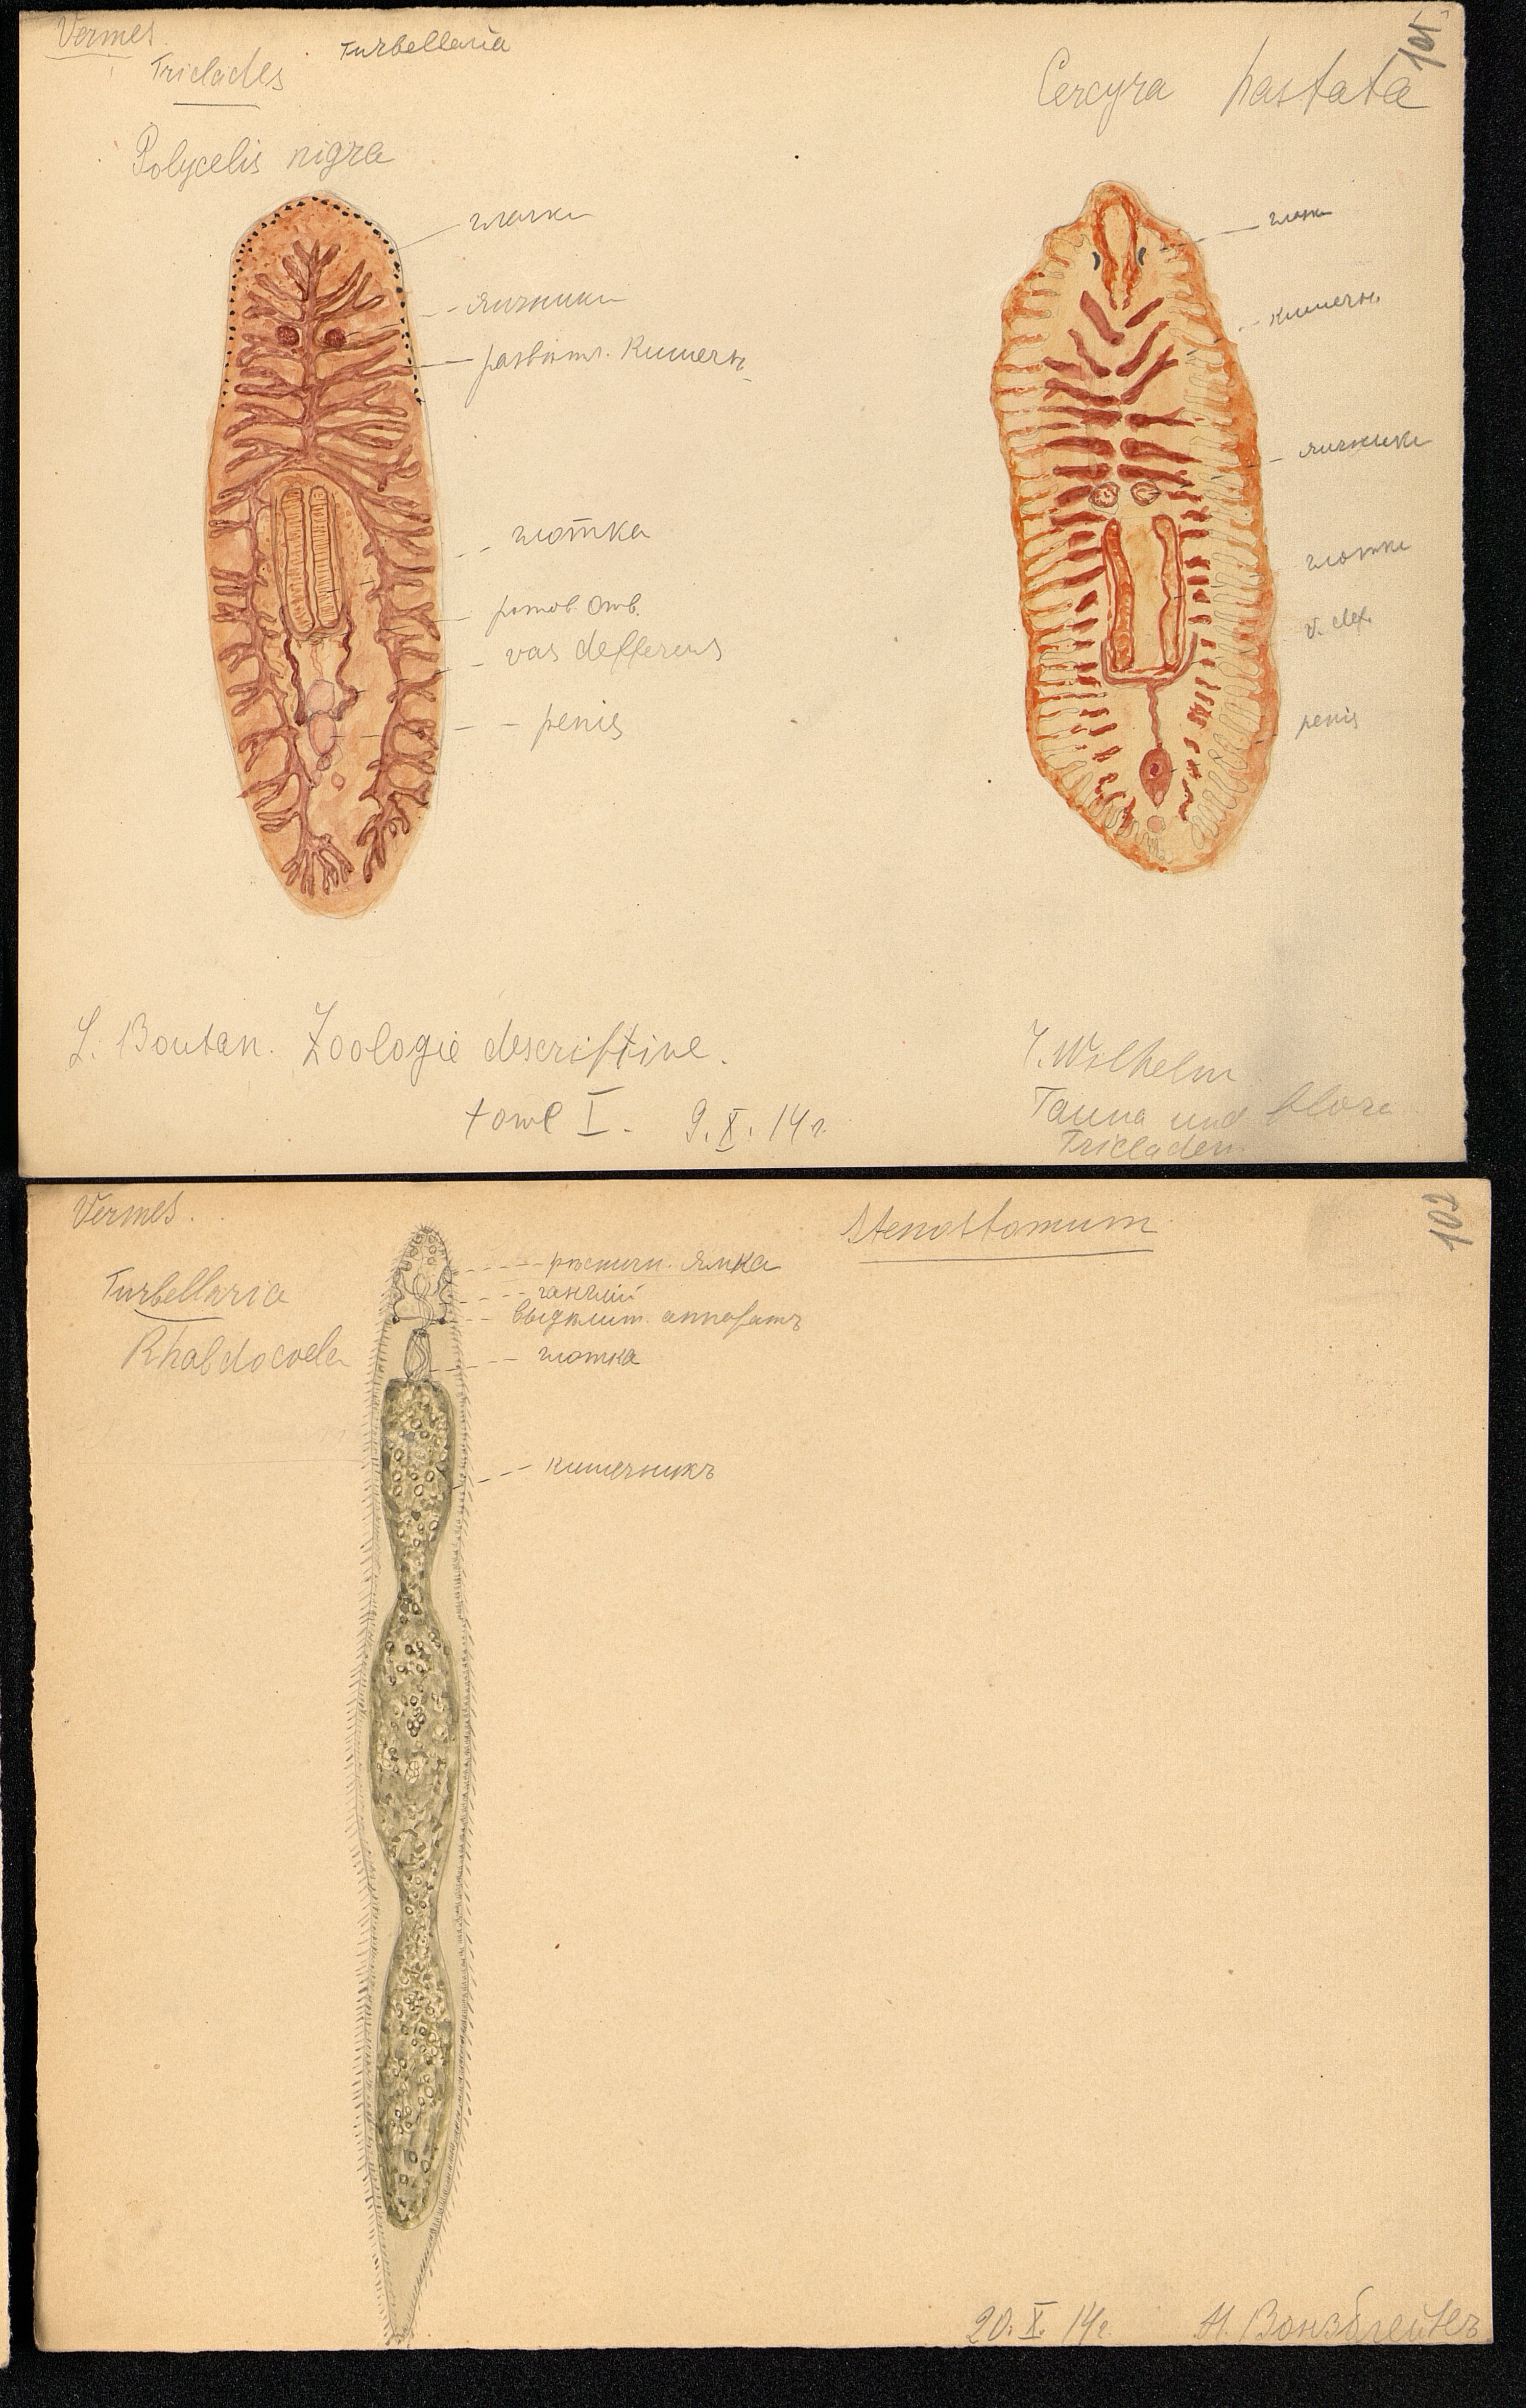 Vermes
Turbellaria
Triclades
Polycelis nigra
глазки
яичники
развѣтвл. Кишечн.
глотка
ротов. отв.
vas defferens
penis
L. Boutan. Zoologie descriptive.
tome I. 9.X.14г.
101
Cercyra hastata
глазки
кишечн.
яичники
глотка
v. def.
penis
J. Wilhelm
Fauna und Flora
Tricladen
Vermes.
Turbellaria
Rhabdocoela
Stenostomum
102
ямка
ганглий
выдѣлит. аппаратъ
глотка
кишечникъ
20.X.14г.